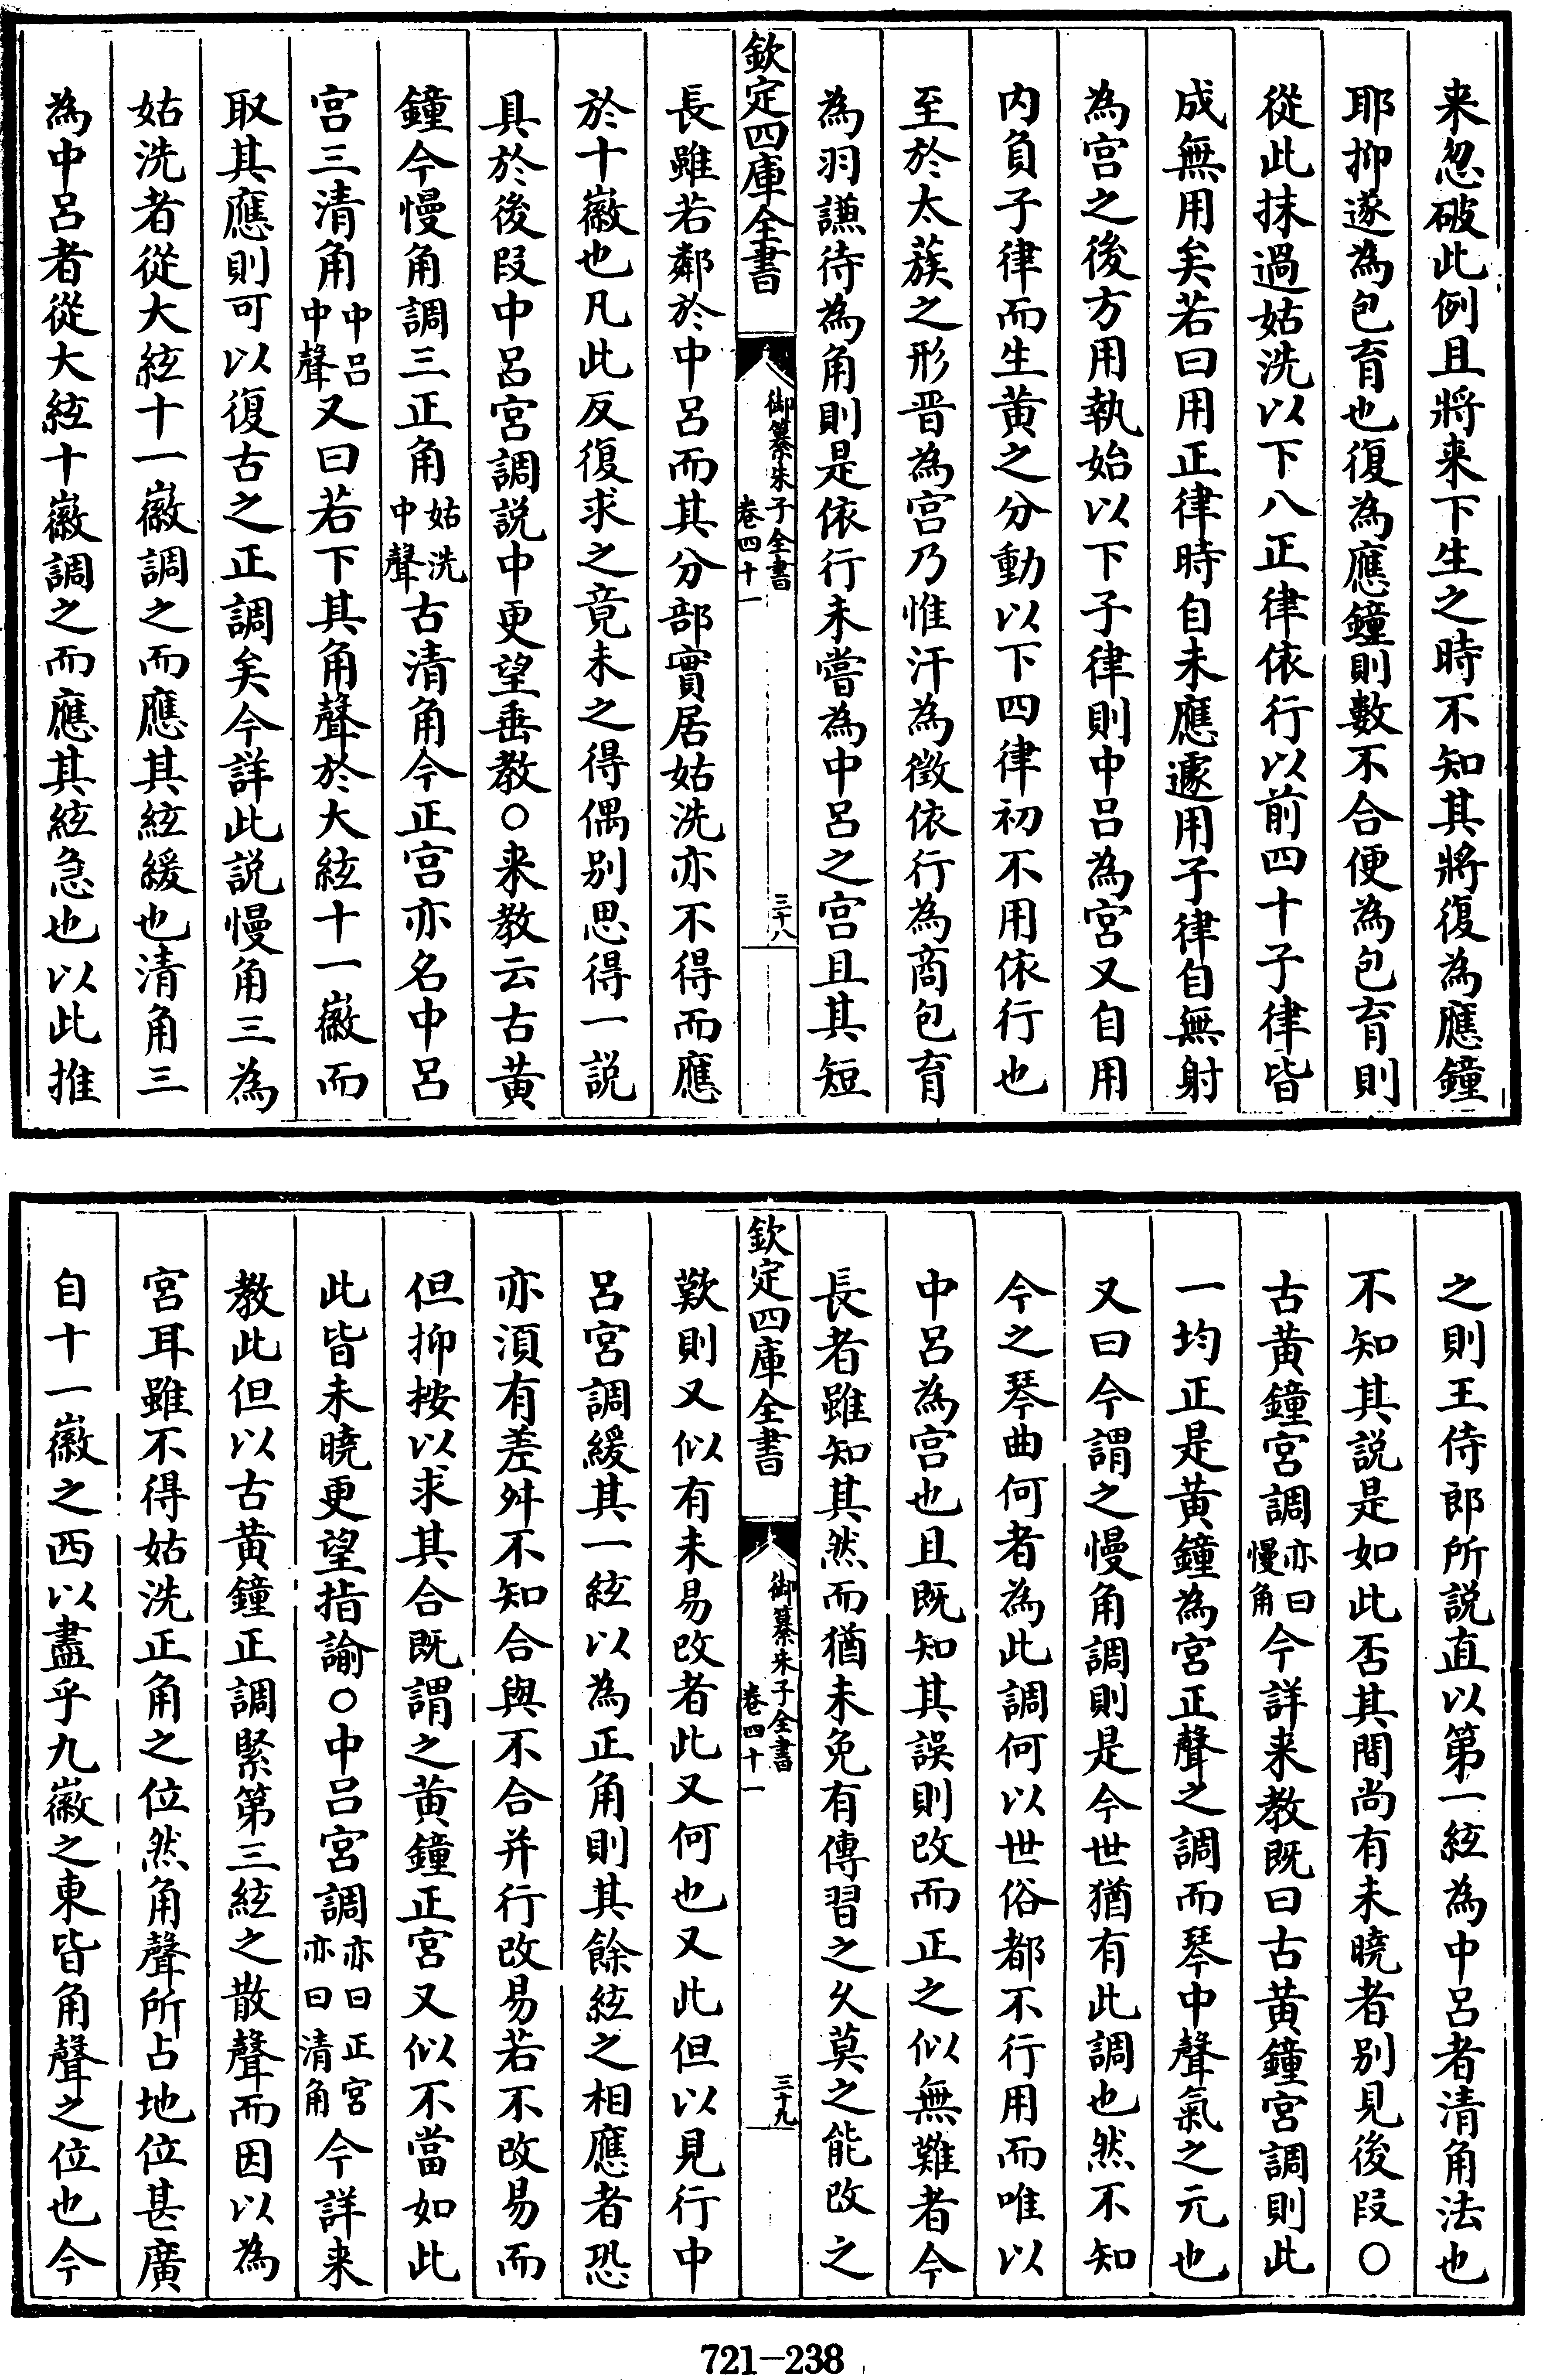 来忽破此例且將来下生之時不知其將復為應鐘
耶抑遂為包育也復為應鐘則數不合便為包育則
從此抹過姑洗以下八正律依行以前四十子律皆
成無用矣若曰用正律時自未應遽用子律自無射
為宮之後方用執始以下子律則中呂為宮又自用
内負子律而生黄之分動以下四律初不用依行也
至於太蔟之形晋為宮乃惟汗為徵依行為商包育
為羽謙待為角則是依行未嘗為中呂之宮且其短
欽定四庫全書
御纂朱子全書
卷四十一
三十八
長雖若鄰於中呂而其分部實居姑洗亦不得而應
於十徽也凡此反復求之竟未之得偶别思得一説
具於後段中呂宮調説中更望垂教○来教云古黄
鐘今慢角調三正角姑洗中聲古清角今正宮亦名中呂
宮三清角中呂中聲又曰若下其角聲於大絃十一徽而
取其應則可以復古之正調矣今詳此説慢角三為
姑洗者從大絃十一徽調之而應其絃緩也清角三
為中呂者從大絃十徽調之而應其絃急也以此推
之則王侍郎所説直以第一絃為中呂者清角法也
不知其説是如此否其間尚有未曉者别見後段○
古黄鐘宮調亦曰慢角今詳来教既曰古黄鐘宮調則此
一均正是黄鐘為宮正聲之調而琴中聲氣之元也
又曰今謂之慢角調則是今世猶有此調也然不知
今之琴曲何者為此調何以世俗都不行用而唯以
中呂為宮也且既知其誤則改而正之似無難者今
長者雖知其然而猶未免有傳習之乆莫之能改之
欽定四庫全書
御纂朱子全書
卷四十一
三十九
歎則又似有未易改者此又何也又此但以見行中
呂宮調緩其一絃以為正角則其餘絃之相應者恐
亦須有差舛不知合與不合并行改易若不改易而
但抑按以求其合既謂之黄鐘正宮又似不當如此
此皆未曉更望指諭○中呂宮調亦曰正宮亦曰清角今詳来
教此但以古黄鐘正調緊第三絃之散聲而因以為
宮耳雖不得姑洗正角之位然角聲所占地位甚廣
自十一徽之西以盡乎九徽之東皆角聲之位也今
721-238